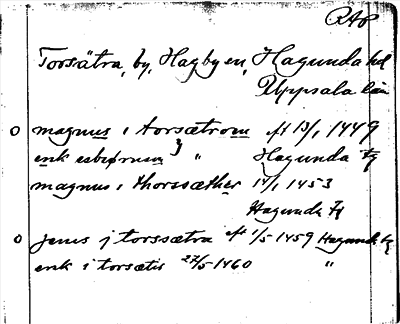 RAp
Torsätra, by, Hagby en, Hagunda hd
Uppsala län
o magnus i torsætrom eft 13/1 1449
erik esbiørnsson } " Hagunda Tg
magnus i thorssæther 14/1 1453
Hagunda Tg
o jenis j torssætra eft 1/5 1459 Hagund. tg
erik i torsætis 27/5 1460 "